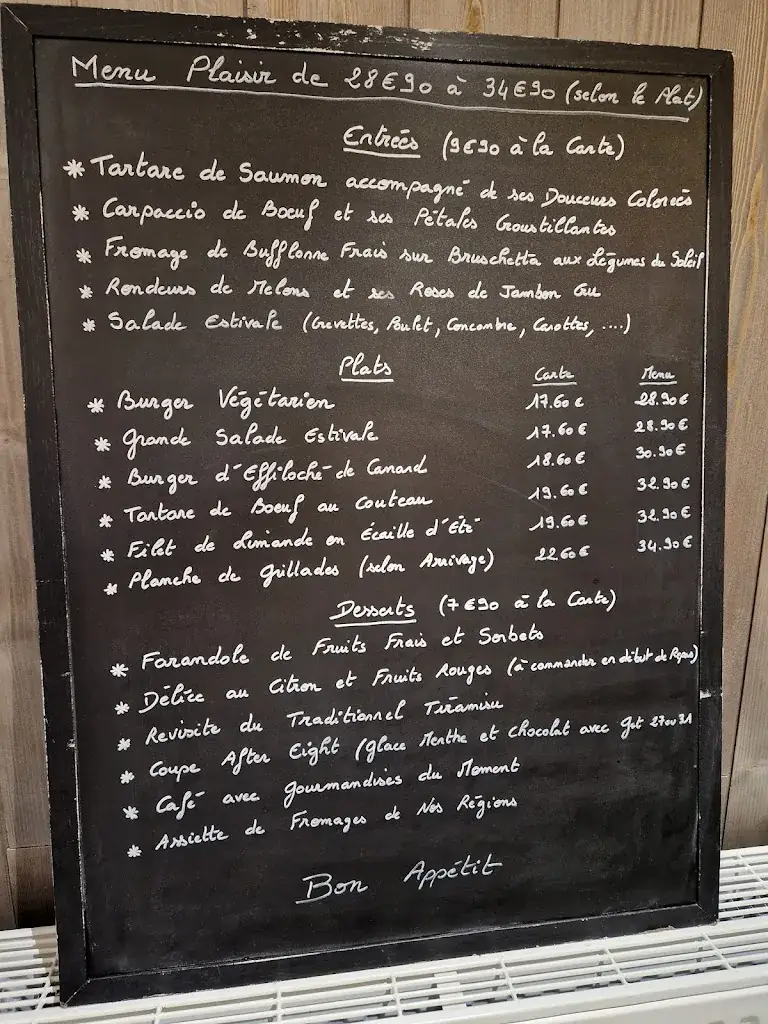 Menu Plaisir de 28€90 à 34€90 (selon le Plat)
Entrées (9€90 à la Carte)
* Tartare de Saumon accompagné de ses Douceurs Colorées
* Carpaccio de Boeuf et ses Pétales Croustillantes
* Fromage de Bufflonne Frais sur Bruschetta aux Légumes du Soleil
* Rondeurs de Melons et ses Roses de Jambon Cru
* Salade Estivale (Crevettes, Poulet, Concombre, Carottes, ....)
Plats Carte Menu
* Burger Végétarien 17.60€ 28.90€
* Grande Salade Estivale 17.60€ 28.90€
* Burger d'Effiloché de Canard 18.60€ 30.90€
* Tartare de Boeuf au Couteau 19.60€ 32.90€
* Filet de Limande en Écaille d'Eté 19.60€ 32.90€
* Planche de Grillades (selon Arrivage) 22.60€ 34.90€
Desserts (7€90 à la Carte)
* Farandole de Fruits Frais et Sorbets
* Délice au Citron et Fruits Rouges (à commander en début de Repas)
* Revisite du Traditionnel Tiramisu
* Coupe After Eight (glace Menthe et chocolat avec Get 27 ou 31
* Café avec Gourmandises du Moment
* Assiette de Fromages de Nos Régions
Bon Appétit